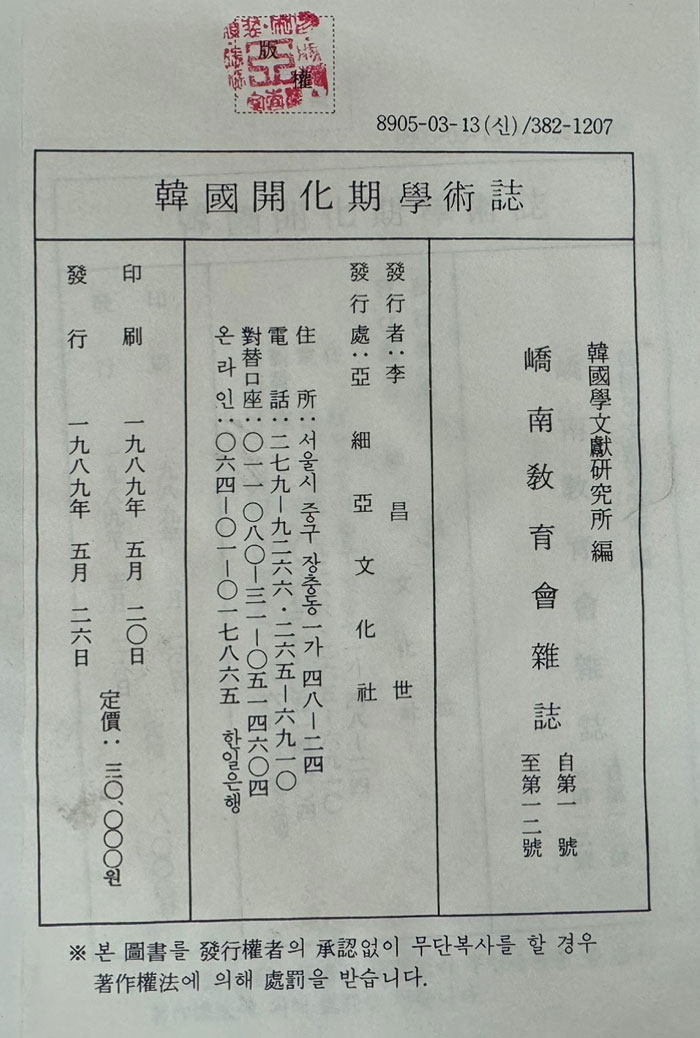 版權
8905-03-13(신)/382-1207
韓國開化期學術誌
韓國學文獻硏究所 編
嶠南敎育會雜誌
自第一號
至第一二號
發行者:李昌世
發行處:亞細亞文化社
住所:서울시 중구 장충동 一가 四八—二四
電話:二七九—九二六六·二六五—六九一〇
對替口座:〇一一〇八〇—三一—〇五一四六〇四
온라인:〇六四—〇一—〇一七八六五 한일은행
印刷 一九八九年 五月 二〇日
發行 一九八九年 五月 二六日
定價:三〇、〇〇〇원
※ 본 圖書를 發行權者의 承認없이 무단복사를 할 경우
著作權法에 의해 處罰을 받습니다.